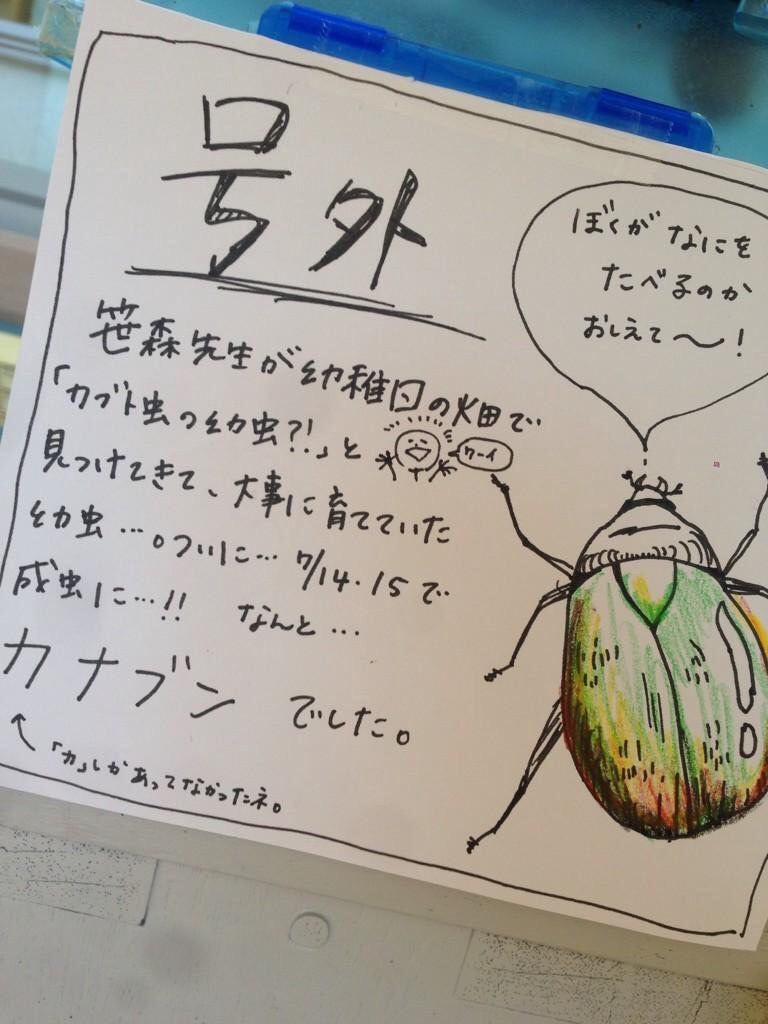 号外
ぼくがなにを
たべるのか
おしえて〜!
笹森先生が幼稚園の畑で
「カブト虫の幼虫?!」と
ワーイ
見つけてきて、大事に育てていた
幼虫…。ついに…7/14.15で
成虫に…!! なんと…
カナブン でした。
↑「カ」しかあってなかったネ。